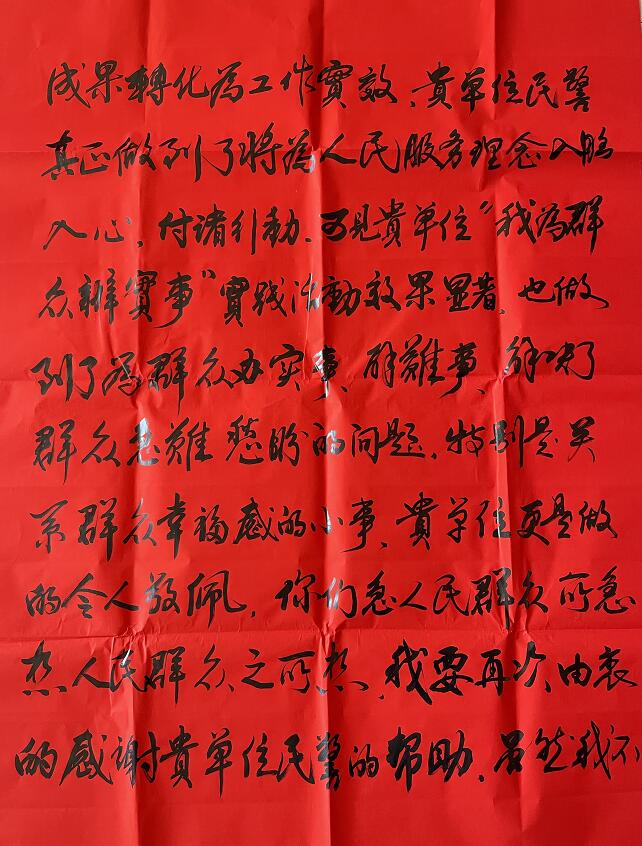 成果轉化為工作實效、貴單位民警
真正做到了將為人民服務理念入腦
入心,付诸行動、可见貴單位“我為群
众辦實事”實践活動效果显著,也做
到了為群众办实事、解難事、解决了
群众急難愁盼的问题,特别是关
系群众幸福感的小事、貴单位更是做
的令人敬佩,你们急人民群众所急
想人民群众之所想、我要再次由衷
的感谢貴單位民警的帮助、虽然我不